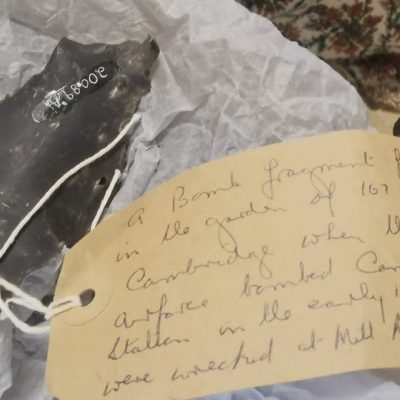 A Bomb fragment f
in the garden of 107
Cambridge when th
airforce bombed Cam
Station in the early
were wrecked at Mill